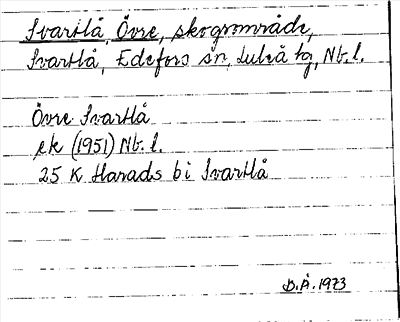 Svartlå, Övre, skogsområde,
Svartlå, Edefors sn, Luleå tg, Nb. l.
Övre Svartlå
ek (1951) Nb. l.
25 K Harads b i Svartlå
D.Å. 1973